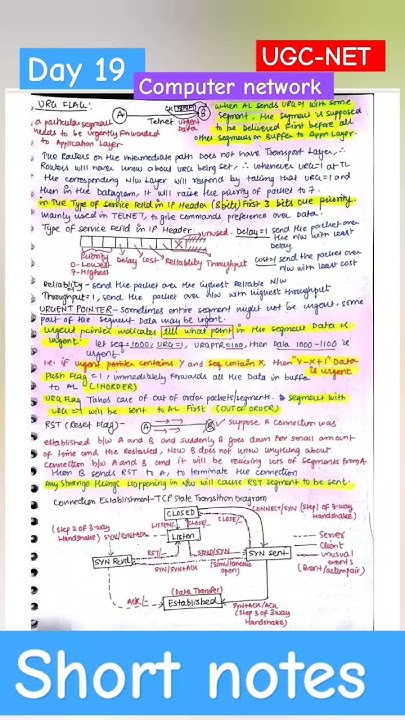 Day 19
UGC-NET
Computer network
URG FLAG:
a particular segment
needs to be urgently forwarded
to Application Layer
A
B
Telnet
Urgent
Data
when AL sends URG=1 with some
segment, the segment is supposed
to be delivered first before all
other segments on Buffer to Appn Layer.
The Routers on the intermediate path does not have Transport Layer, ∴
Routers will never know about URG being set, ∴ whenever URG=1 at TL
the corresponding N/w Layer will respond by taking that URG=1 and
then in the Datagram, it will raise the priority of packet to 7.
In the Type of service field in IP Header (8bits) First 3 bits are priority
mainly used in TELNET, to give commands preference over data.
Type of service field in IP Header
unused.
Delay=1 send the packet over
the N/w with least
delay
Priority
Delay
Cost
Reliability
Throughput
0-Lowest
7-Highest
Cost=1 send the packet over
N/w with least cost
Reliability - send the packet over the highest Reliable N/w
Throughput=1, send the packet over N/w with highest throughput
URGENT POINTER - Sometimes entire segment might not be urgent, some
part of the segment Data may be urgent.
Urgent pointer indicates till what point in the segment Data is
urgent. let seq=1000, URG=1, URGPTR=100, then Data 1000-1100 is
urgent.
i.e. if urgent pointer contains Y and seq contain X, then "Y-X+1" Data
is urgent
Push Flag=1, immediately forwards all the Data in buffer
to AL (INORDER)
URG Flag Takes care of out of order packets/segments. Segment with
URG=1 will be sent to AL First (OUT OF ORDER)
RST (Reset Flag) -
A
B
suppose A connection was
established b/w A and B and suddenly B goes down for small amount
of time and the Restarted, Now B does not know anything about
connection b/w A and B and it will be receiving lots of segments from A
then B sends RST to A, to terminate the connection
Any strange things happening in N/w will cause RST segment to be sent.
Connection Establishment-TCP State Transition Diagram
CLOSED
CONNECT/SYN (Step 1 of 3-way
Handshake)
(Step 2 of 3-way
Handshake)
SYN/SYN+ACK
LISTEN/-
CLOSE/-
CLOSE/-
Listen
RST/-
SEND/SYN
SYN Rcvd
SYN/SYN+ACK
(simultaneous
open)
SYN sent
Server
Client
unusual
events
(Event/action pair)
ACK/-
(Data Transfer)
Established
SYN+ACK/ACK
(Step 3 of 3way
Handshake)
Short notes